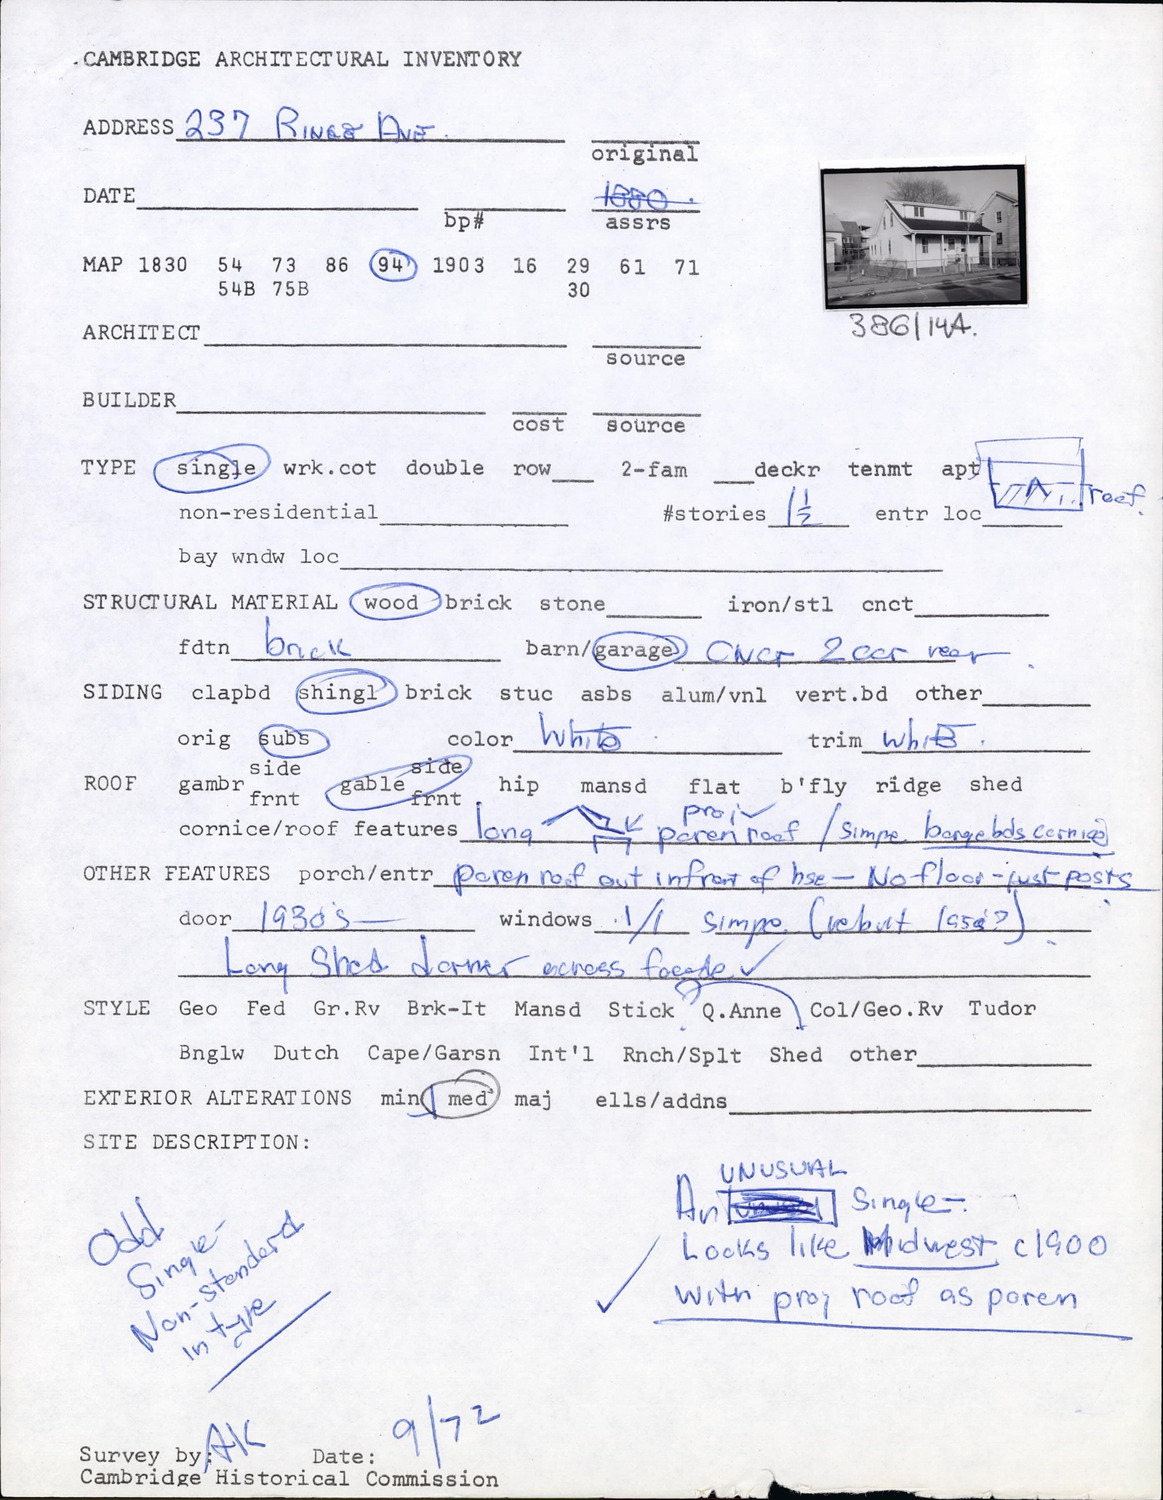 CAMBRIDGE ARCHITECTURAL INVENTORY
ADDRESS 237 Rindge Ave.
original
DATE 1880
bp# assrs
MAP 1830 54 73 86 94 1903 16 29 61 71
54B 75B 30
386/14A.
ARCHITECT
source
BUILDER
cost source
TYPE single wrk.cot double row 2-fam deckr tenmt apt
roof
non-residential #stories 1 1/2 entr loc
bay wndw loc
STRUCTURAL MATERIAL wood brick stone iron/stl cnct
fdtn brick barn/garage 2 car rear
SIDING clapbd shingl brick stuc asbs alum/vnl vert.bd other
orig subs color White trim white.
ROOF gambr side frnt gable side frnt hip mansd flat b'fly ridge shed
proj
cornice/roof features long roof / simple bargebds cornice
OTHER FEATURES porch/entr roof out infront of hse - No floor - just posts
door 1930's windows 1/1 simple (rebuilt 1950?)
Long Shed dormer across facade ✓
STYLE Geo Fed Gr.Rv Brk-It Mansd Stick ? Q.Anne Col/Geo.Rv Tudor
Bnglw Dutch Cape/Garsn Int'l Rnch/Splt Shed other
EXTERIOR ALTERATIONS min med maj ells/addns
SITE DESCRIPTION:
Odd
Single-
Non-standard
in type
UNUSUAL
An Single-
Looks like Midwest c1900
with proj roof as
Survey by: AK Date: 9/72
Cambridge Historical Commission